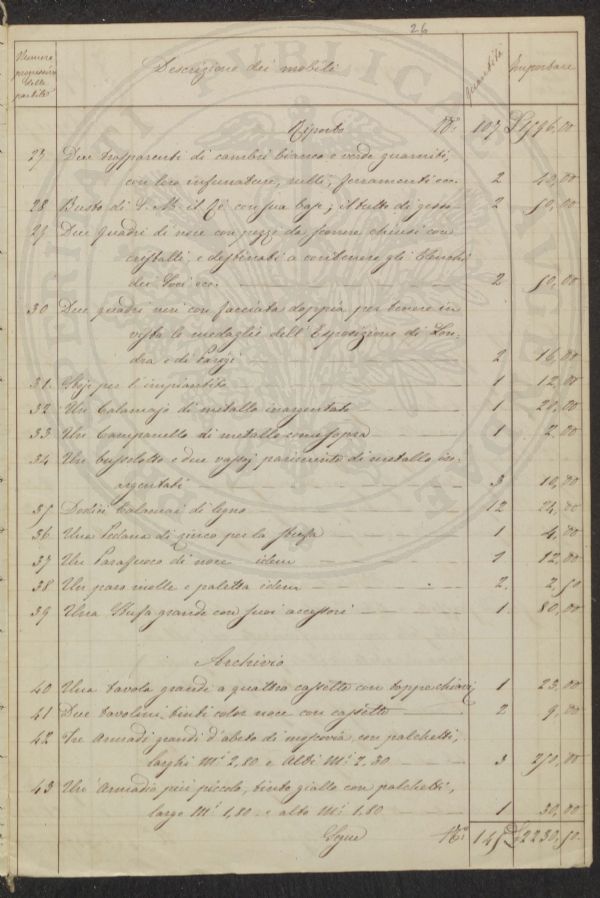 26
Numero
progressivo
delle
partite
Descrizione dei mobili
quantità
Importare
Riporto N.° 107 £ 1596,00
27 Due trasparenti di cambrì bianco e verde guarniti,
con loro infunature, rulli, ferramenti ecc. 2 40,00
28 Busto di S. M. il Re con sua base; il tutto di gesso 2 50,00
29 Due quadri di noce con pezzi da poterne chiusi con
cristalli, e destinati a contenere gli Elenchi
dei Soci ecc. 2 50,00
30 Due quadri neri con facciata doppia per tenere in
vista le medaglie dell'Esposizione di Lon-
dra e di Parigi 2 16,00
31 per l'impiantito 1 12,00
32 Un Calamajo di metallo inargentato 1 20,00
33 Un Campanello di metallo come sopra 1 2,00
34 Un bussolotto e due vassoj parimente di metallo in-
argentati 3 10,00
35 Dodici Calamai di legno 12 24,00
36 Una Pedana di zinco per la stufa 1 4,00
37 Un Parafuoco di noce idem 1 12,00
38 Un paro molle e paletta idem 2 2,50
39 Una Stufa grande con suoi accessori 1 80,00
Archivio
40 Una tavola grande a quattro cassette con toppe chiavi 1 23,00
41 Due tavolini tinti color noce con cassetto 2 9,00
42 Tre Armadj grandi d'abeto di moscovia con palchetti,
larghi M.i 2,80 e Alti M.i 2,30 3 250,00
43 Un'Armadio più piccolo, tinto giallo con palchetti,
largo M.i 1,80 e alto M.i 1,80 1 30,00
Segue N.° 145 £ 2230,50